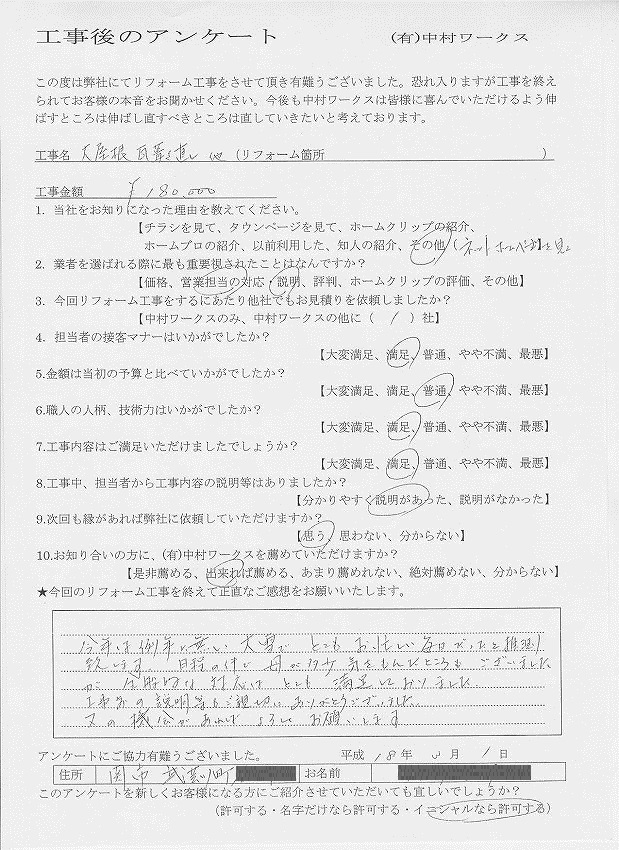 工事後のアンケート (有)中村ワークス
この度は弊社にてリフォーム工事をさせて頂き有難うございました。恐れ入りますが工事を終え
られてお客様の本音をお聞かせください。今後も中村ワークスは皆様に喜んでいただけるよう伸
ばすところは伸ばし直すべきところは直していきたいと考えております。
工事名 大屋根 瓦葺き直し 他 (リフォーム箇所 )
工事金額 ¥180,000
1. 当社をお知りになった理由を教えてください。
【チラシを見て、タウンページを見て、ホームクリップの紹介、
ホームプロの紹介、以前利用した、知人の紹介、その他(ネット ホームページ】を見て
2. 業者を選ばれる際に最も重要視されたことはなんですか？
【価格、営業担当の対応・説明、評判、ホームクリップの評価、その他】
3. 今回リフォーム工事をするにあたり他社でもお見積りを依頼しましたか？
【中村ワークスのみ、中村ワークスの他に ( 1 ) 社】
4. 担当者の接客マナーはいかがでしたか？
【大変満足、満足、普通、やや不満、最悪】
5.金額は当初の予算と比べていかがでしたか？
【大変満足、満足、普通、やや不満、最悪】
6.職人の人柄、技術力はいかがでしたか？
【大変満足、満足、普通、やや不満、最悪】
7.工事内容はご満足いただけましたでしょうか？
【大変満足、満足、普通、やや不満、最悪】
8.工事中、担当者から工事内容の説明等はありましたか？
【分かりやすく説明があった、説明がなかった】
9.次回も縁があれば弊社に依頼していただけますか？
【思う、思わない、分からない】
10.お知り合いの方に、(有)中村ワークスを薦めていただけますか？
【是非薦める、出来れば薦める、あまり薦めれない、絶対薦めない、分からない】
★今回のリフォーム工事を終えて正直なご感想をお願いいたします。
今年は例年に無い大雪で とてもお忙しい毎日だったと推測
致します。日程の件で 母が多少気をもんだところもございました
が 全般的な対応は とても 満足しておりました。
工事等の説明等もご親切に ありがとうございました。
又の機会があれば よろしく お願いします
アンケートにご協力有難うございました。 平成 18 年 3 月 1 日
住所 関市 武芸川町 お名前
このアンケートを新しくお客様になる方にご紹介させていただいても宜しいでしょうか？
(許可する・名字だけなら許可する・イニシャルなら許可する)